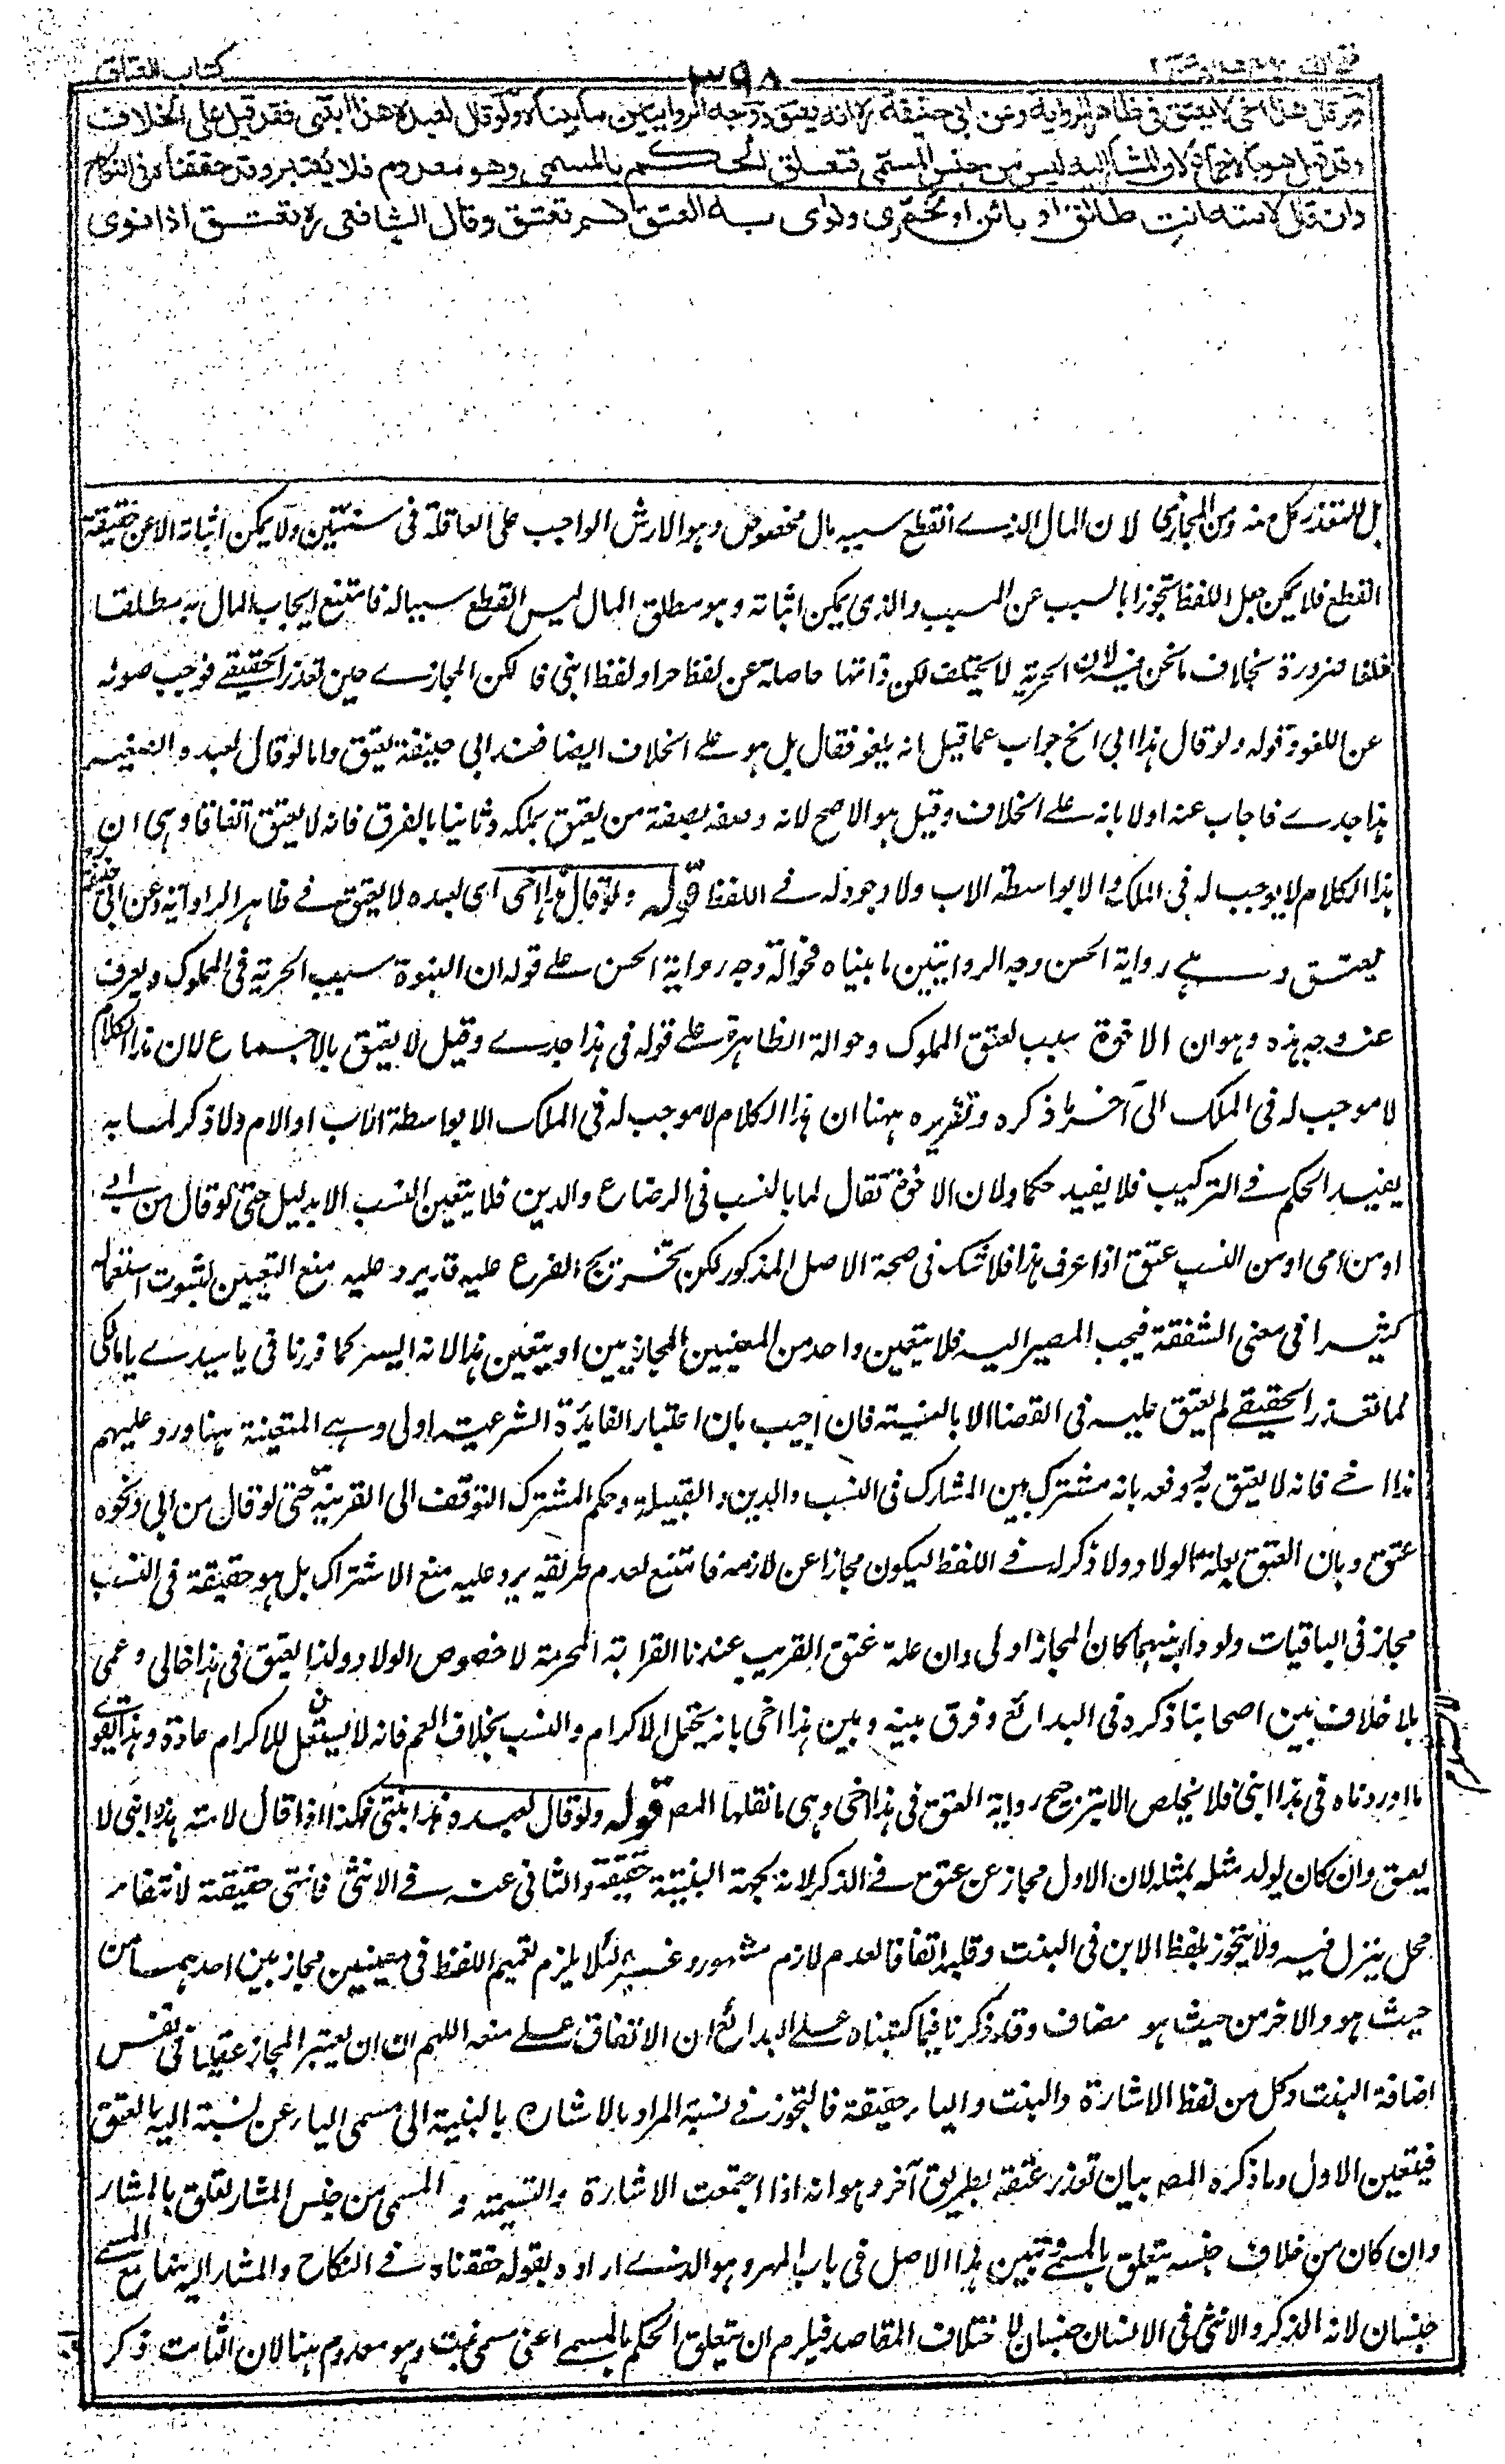 كتاب العتاق
٣٩٨
ولو قال هذا اخى لا يعتق فى ظاهر الرواية وعن ابى حنيفة رہ انه يعتق ووجه الروايتين ما بيناه ولو قال لعبده هذا ابنتى فقد قيل على الخلاف
وقد قيل هو بالاجماع لان المشار اليه ليس من جنس المسمى فتعلق الحكم بالمسمى وهو معدوم فلا يعتبر وقد حققناه فى النكاح
وان قال لامته انت طالق او بائن او تخمرى ونوى به العتق لم تعتق وقال الشافعى رہ تعتق اذا نوى
بل للتعذر كل منه ومن المجازى لان المال الذى القطع سببه مال مخصوص وهو الارش الواجب على العاقلة فى سنتين ولا يمكن اثباته الا عن حقيقة
القطع فلا يمكن جعل اللفظ تجوزا بالسبب عن المسبب والذى يمكن اثباته وهو مطلق المال ليس القطع سببا له فامتنع ايجاب المال به مطلقا
خلفا ضرورة بخلاف ما نحن فيه لان الحرية لا يختلف لكن ذاتها حاصلة عن لفظ حر او لفظ ابنى فا لكن المجازى حين تعذر الحقيقى فوجب صونه
عن اللغو وقوله ولو قال هذا ابى الخ جواب عما قيل انه يلغو فقال بل هو على الخلاف ايضا فعند ابى حنيفة يعتق واما لو قال لعبده الصغير
هذا جدى فاجاب عنه اولا بانه على الخلاف وقيل هو الاصح لانه وصفه بصفة من يعتق بملكه وثانيا بالفرق فانه لا يعتق اتفاقا وهى ان
هذا الكلام لا يوجب له فى الملك الا بواسطة الاب ولا وجود له فى اللفظ قوله ولو قال هذا اخى اى لعبده لا يعتق فى ظاهر الرواية وعن ابى حنيفة
يعتق وهى رواية الحسن وجه الروايتين ما بيناه فحوالة وجه رواية الحسن على قوله ان البنوة سبب الحرية فى المملوك ويعرف
عنه وجه هذه وهو ان الاخوة سبب لعتق المملوك وحوالة الظاهرة على قوله فى هذا جدى وقيل لا يعتق بالاجماع لان هذا الكلام
لا موجب له فى الملك الى آخر ما ذكره وتقريره ههنا ان هذا الكلام لا موجب له فى الملك الا بواسطة الاب او الام ولا ذكر لما به
يفيد الحكم فى التركيب فلا يفيد حكما ولان الاخوة تقال لما بالنسب فى الرضاع والدين فلا يتعين النسب الا بدليل حتى لو قال من ابى
او من امى او من النسب عتق اذا عرف هذا فلا شك فى صحة الاصل المذكور لكن تخريج الفرع عليه قد يرد عليه منع التعيين لثبوت استعماله
كثيرا فى معنى الشفقة فيجب المصير اليه فلا يتعين واحد من المعنيين المجازيين او يتعين هذا لانه اليسر كما قررنا فى يا سيدى يا مالكى
لما تعذر الحقيقى لم يعتق عليه فى القضا الا بالنية فان اجيب بان اعتبار الفائدة الشرعية اولى وهى المتعينة ههنا ورد عليهم
هذا اخى فانه لا يعتق به ودفعه بانه مشترك بين المشارك فى النسب والدين والقبيلة وحكم المشترك التوقف الى القرينة حتى لو قال من ابى ونحوه
عتق وبان العتق بعلة الولاد ولا ذكر له فى اللفظ ليكون مجازا عن لازمه فامتنع لعدم طريقه يرد عليه منع الاشتراك بل هو حقيقة فى النسب
مجاز فى الباقيات ولو دار بينهما كان المجاز اولى وان علة عتق القريب عندنا القرابة المحرمة لا خصوص الولاد ولذا يعتق فى هذا خالى وعمى
بلا خلاف بين اصحابنا ذكره فى البدائع وفرق بينه وبين هذا اخى بانه يحتمل الاكرام والنسب بخلاف العم فانه لا يستعمل للاكرام عادة وهذا يقوى
ما اوردناه فى هذا ابنى فلا يخلص الا بترجيح رواية العتق فى هذا اخى وهى ما نقلها المصـ قوله ولو قال لعبده هذا بنتى فكذا اذا قال لامته هذا ابنى لا
يعتق وان كان يولد مثله لمثله لان الاول مجاز عن عتق فى الذكر لانه بجهة البنتية حقيقة والثانى عنه فى الانثى فانتفى حقيقته لانتفاء
محل ينزل فيه ولا يتجوز بلفظ الابن فى البنت وقلبه اتفاقا لعدم لازم مشهور وغيره لئلا يلزم تعميم اللفظ فى معنيين مجازيين احدهما من
حيث هو والاخر من حيث هو مضاف وقد ذكرنا فيما كتبناه على البدائع ان الاتفاق على منعه اللهم الا ان يعتبر المجاز عقليا فى نفس
اضافة البنت وكل من لفظ الاشارة والبنت والياء حقيقة فالتجوز فى نسبة المراد بالاشارة بالبنتية الى مسمى الياء عن نسبة اليه بالعتق
فيتعين الاول وما ذكره المصـ بيان تعذر عتقه بطريق آخر وهو انه اذا اجتمعت الاشارة والتسمية والمسمى من جنس المشار تعلق بالمشار
وان كان من خلاف جنسه يتعلق بالمسمى وتبين هذا الاصل فى باب المهر وهو الذى اراده بقوله حققناه فى النكاح والمشار اليه هنا مع المسمى
جنسان لانه الذكر والانثى فى الانسان جنسان لاختلاف المقاصد فيلزم ان يتعلق الحكم بالمسمى اعنى مسمى بنت وهو معدوم هنا لان الثابت ذكر